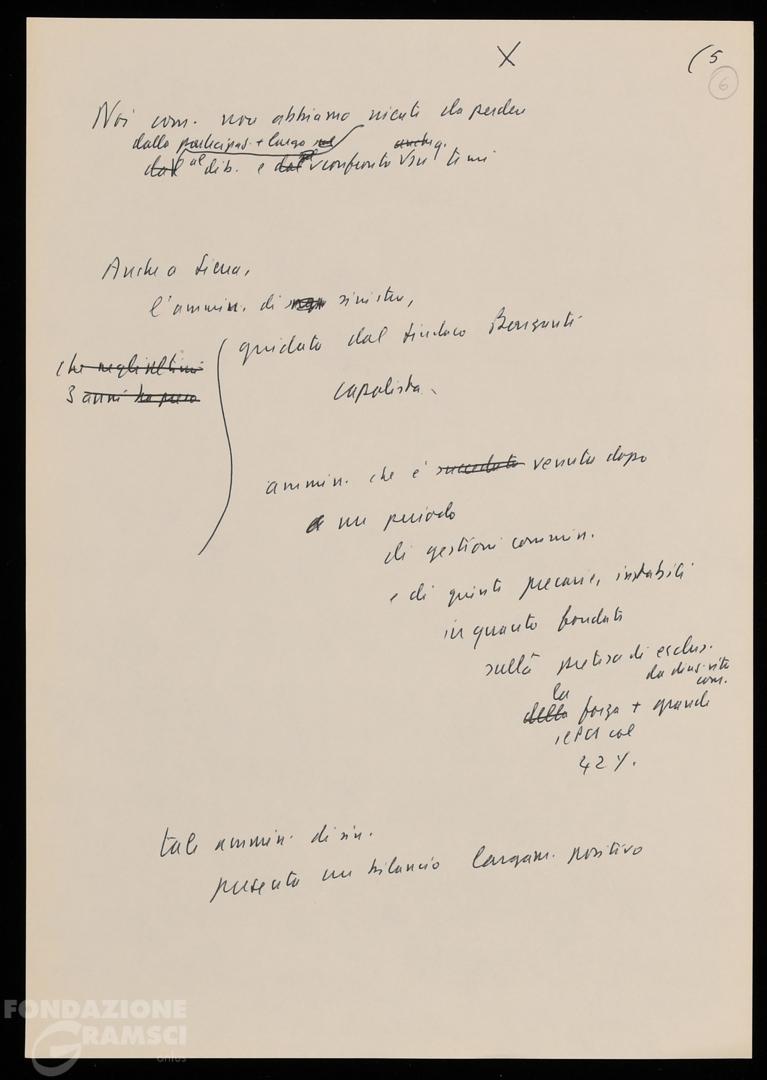 X
(5
6
Noi com. non abbiamo niente da perdere
dalla partecipaz. + larga
dal al dib. e dal confronto su temi
Anche a Siena,
l'ammin. di sinistra,
guidata dal sindaco
capolista
che negli ultimi
3 anni ha
ammin. che è succeduta venuta dopo
a un periodo
di gestioni commin.
e di giunte precarie, instabili
in quanto fondate
sulla pretesa di esclus.
da
com.
la
della forza + grande
il PCI col
42%.
tale ammin. di sin.
presenta un bilancio largam. positivo
FONDAZIONE
GRAMSCI
onlus